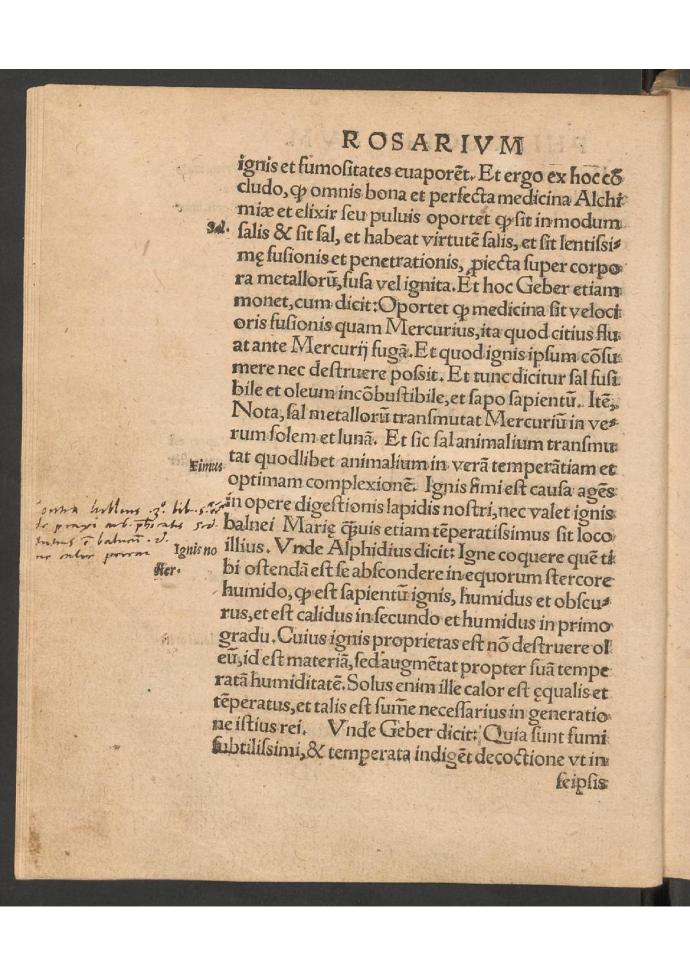 ROSARIVM
ignis et fumoſitates euaporēt. Et ergo ex hoc cō
cludo, ꝙ omnis bona et perfecta medicina Alchi
miæ et elixir ſeu puluis oportet ꝙ ſit in modum
Sal.
ſalis & ſit ſal, et habeat virtutē ſalis, et ſit lentiſſi⸗
mę fuſionis et penetrationis, ꝓiecta ſuper corpo
ra metallorū, fuſa vel ignita. Et hoc Geber etiam
monet, cum dicit: Oportet ꝙ medicina ſit veloci
oris fuſionis quam Mercurius, ita quod citius flu
at ante Mercurij fugā. Et quod ignis ipſum cōſu
mere nec deſtruere poſſit. Et tunc dicitur ſal fuſi
bile et oleum incōbuſtibile, et ſapo ſapientū. Itē,
Nota, ſal metallorū tranſmutat Mercuriū in ve⸗
rum ſolem et lunā. Et ſic ſal animalium tranſmu
Fimus
tat quodlibet animalium in verā temperātiam et
optimam complexionē. Ignis fimi eſt cauſa agēs
in opere digeſtionis lapidis noſtri, nec valet ignis
balnei Marię ꝗ̃uis etiam tēperatiſſimus ſit loco
Ignis no
ſter.
illius. Vnde Alphidius dicit: Igne coquere quē ti
bi oſtendā eſt ſe abſcondere in equorum ſtercore
humido, ꝙ eſt ſapientū ignis, humidus et obſcu⸗
rus, et eſt calidus in ſecundo et humidus in primo
gradu. Cuius ignis proprietas eſt nō deſtruere ol
eū, id eſt materiā, ſed augmētat propter ſuā tempe
ratā humiditatē. Solus enim ille calor eſt ęqualis et
tēperatus, et talis eſt ſume neceſſarius in generatio
ne iſtius rei. Vnde Geber dicit: Quia ſunt fumi
ſubtiliſſimi, & temperata indigēt decoctione vt in
ſeipſis